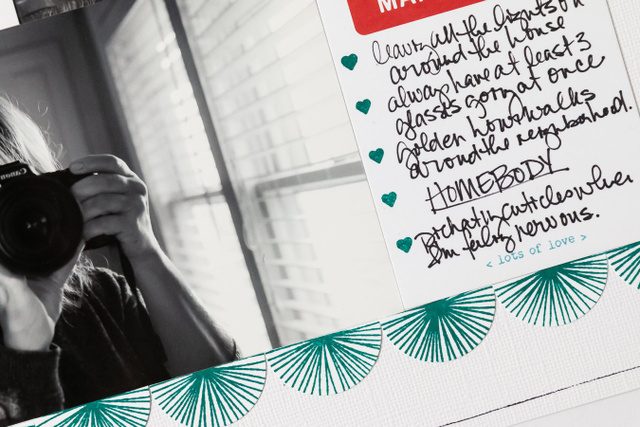 MA
leaving all the lights on
around the house
always have at least 3
glasses going at once
golden hour walks
around the neighborhood.
HOMEBODY
cuticles when
I'm feeling nervous.
< lots of love >
Canon